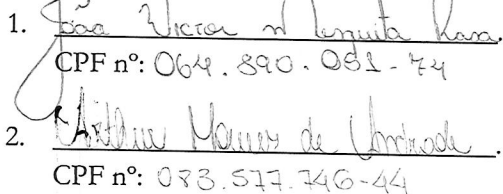 1. João Victor N Mesquita Rosa.
CPF nº: 064.890.051-74
2. Arthur de Andrade.
CPF nº: 083.577.746-44